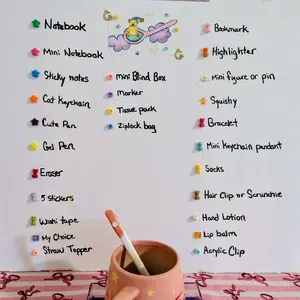 Notebook
Mini Notebook
Sticky notes
Cat Keychain
Cute Pen
Gel Pen
Eraser
5 stickers
Washi tape
My Choice
Straw Topper
mini Blind Box
Marker
Tissue pack
Ziplock bag
Bookmark
Highlighter
Mini figure or pin
Squishy
Bracelet
Mini Keychain pendant
Socks
Hair Clip or Scrunchie
Hand Lotion
Lip balm
Acrylic Clip